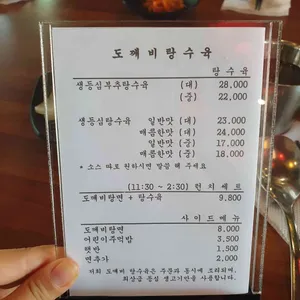 도깨비탕수육
탕 수 육
생등심부추탕수육 (대) 28,000
(중) 22,000
생등심탕수육 일반맛 (대) 23.000
매콤한맛 (대) 24,000
일반맛 (중) 17.000
매콤한맛 (중) 18.000
* 소스 따로 원하시면 말씀 해 주세요
(11:30 ~ 2:30) 런 치 세 트
도깨비탕면 + 탕수육 9.800
사 이 드 메 뉴
도깨비탕면 8.000
어린이주먹밥 3,500
햇반 1,500
면추가 2.000
저희 도깨비 탕수육은 주문과 동시에 조리되며,
최상급 등심 생고기만을 사용합니다.